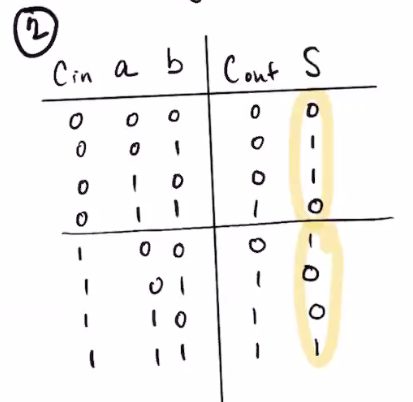 2
Cin a b Cout S
0 0 0 0 0
0 0 1 0 1
0 1 0 0 1
0 1 1 1 0
1 0 0 0 1
1 0 1 1 0
1 1 0 1 0
1 1 1 1 1